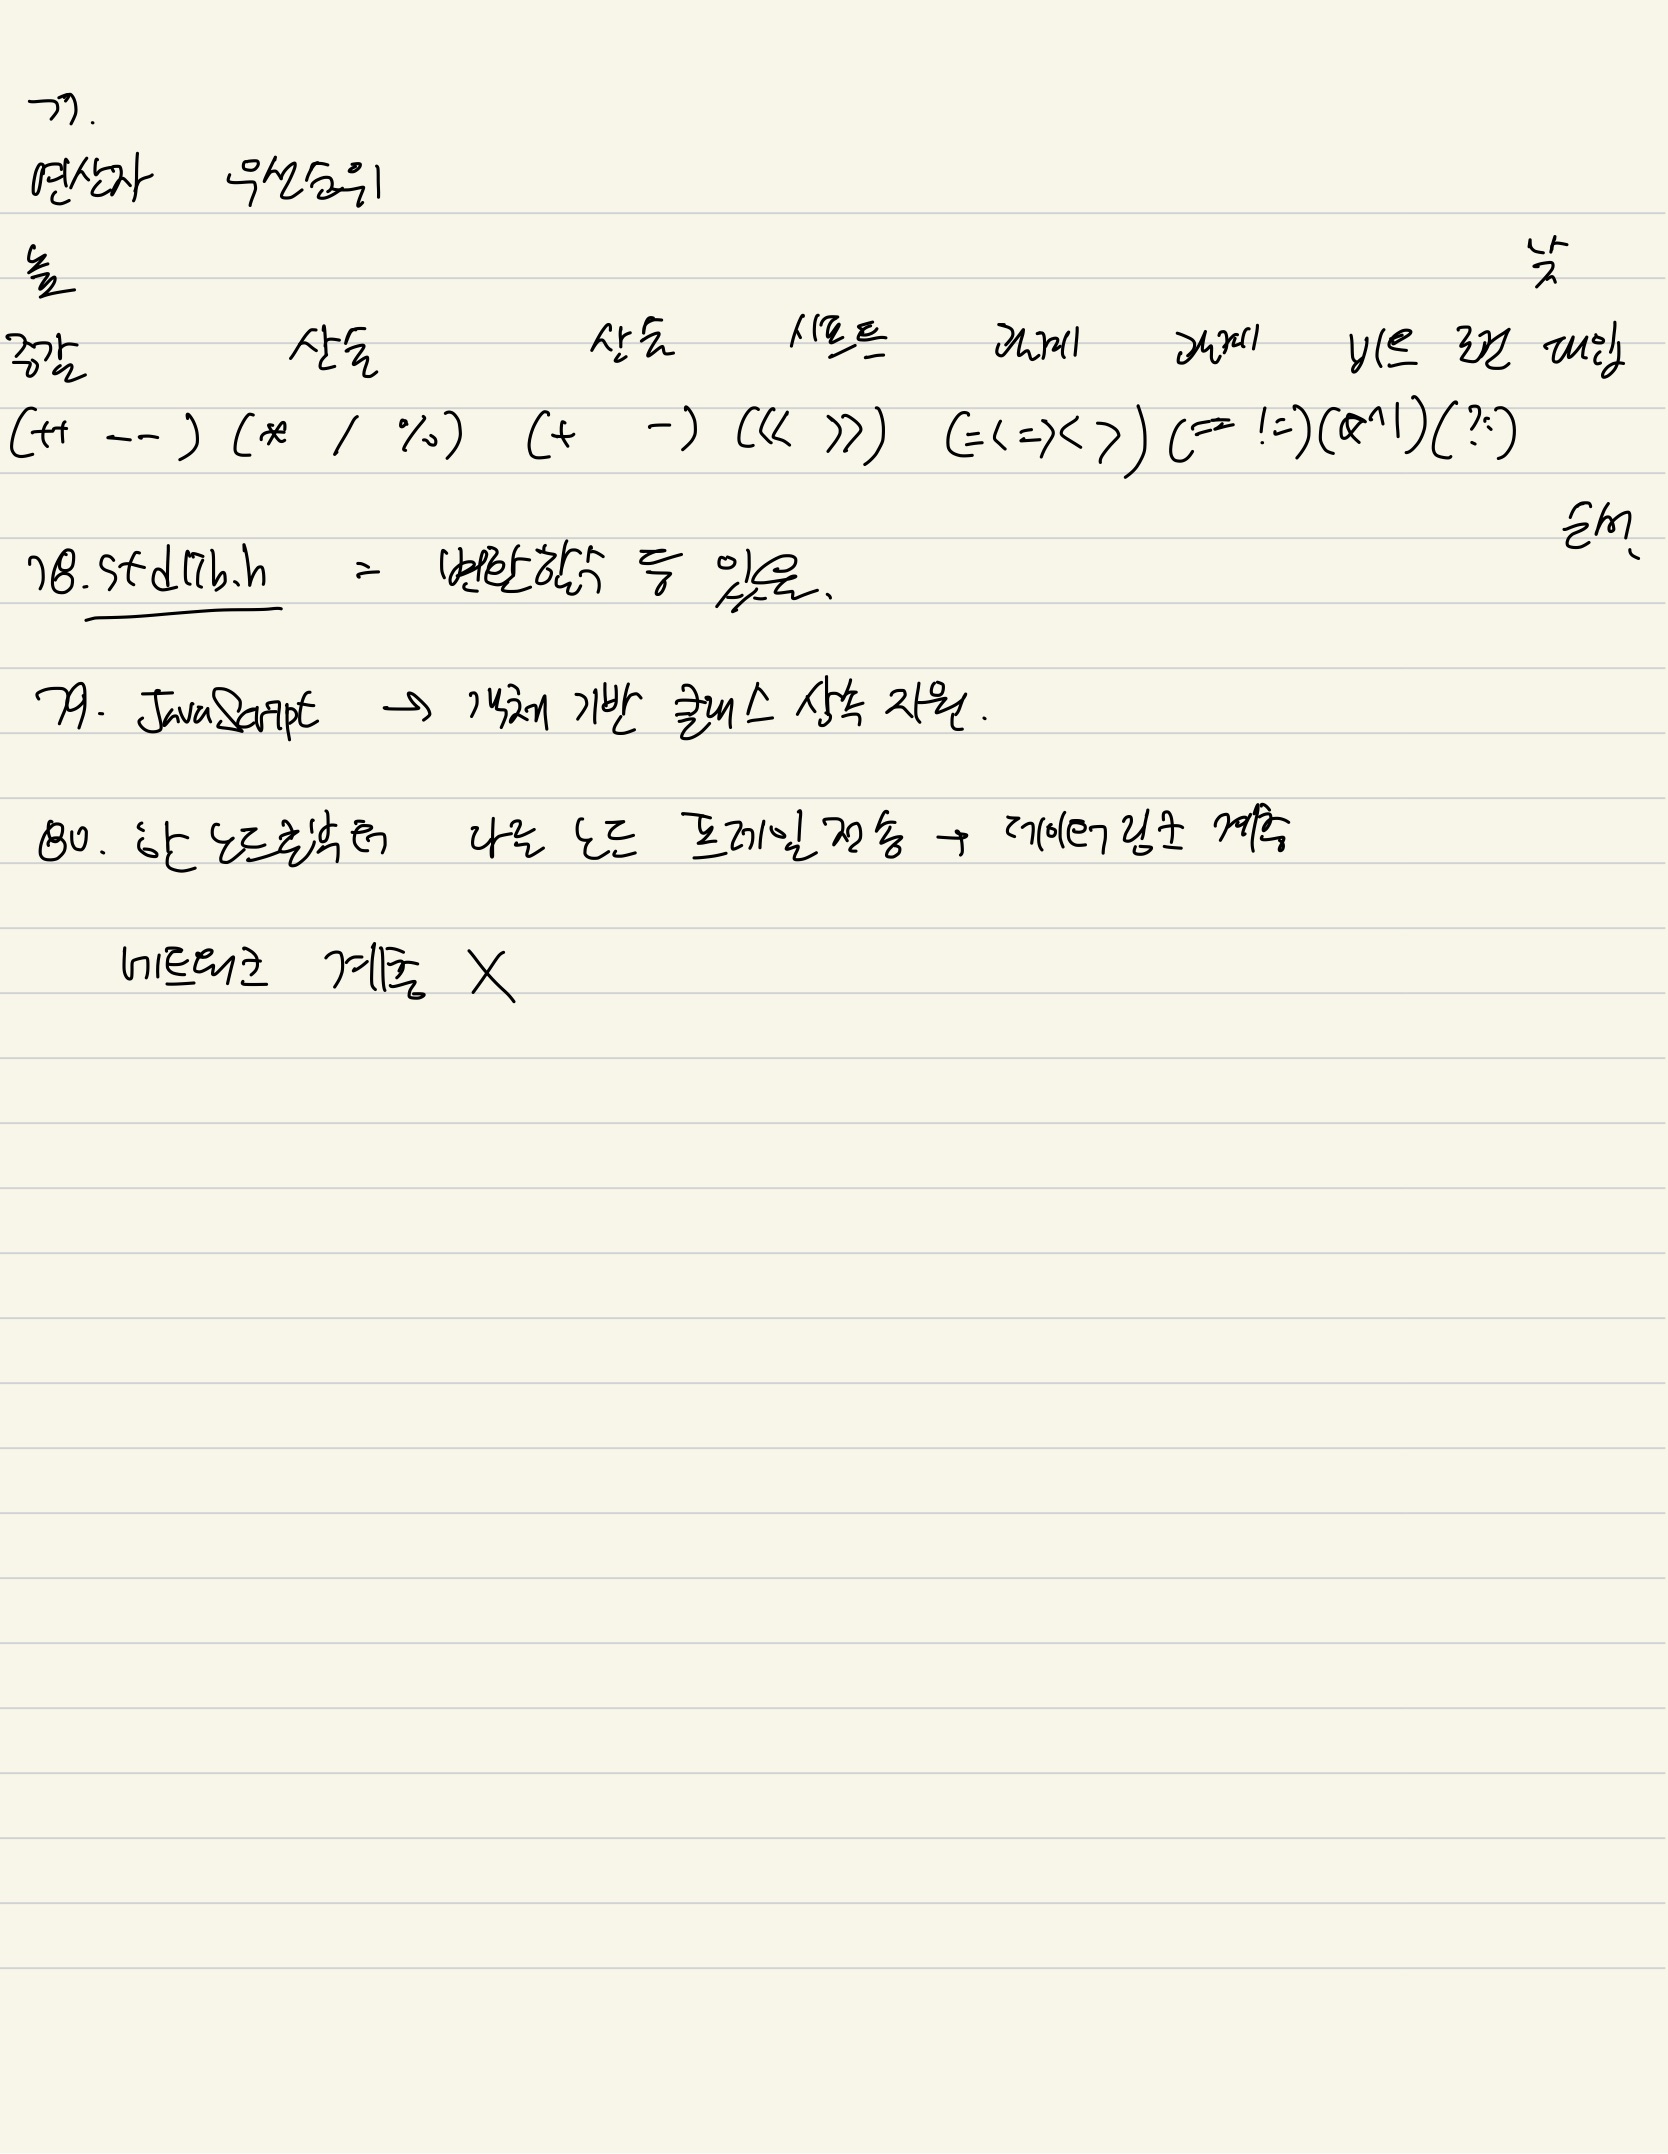 77.
연산자 우선순위
높 낮
증감 산술 산술 시프트 관계 관계 비트 조건 대입
(++ --) (* / %) (+ -) (<< >>) (=< => < >) (== !=) (& ^ |) (?:)
순서
78. stdlib.h = 변환함수 등 있음.
79. JavaScript → 객체 기반 클래스 상속 지원.
80. 한 노드로부터 다른 노드 프레임 전송 → 데이터 링크 계층
네트워크 계층 X